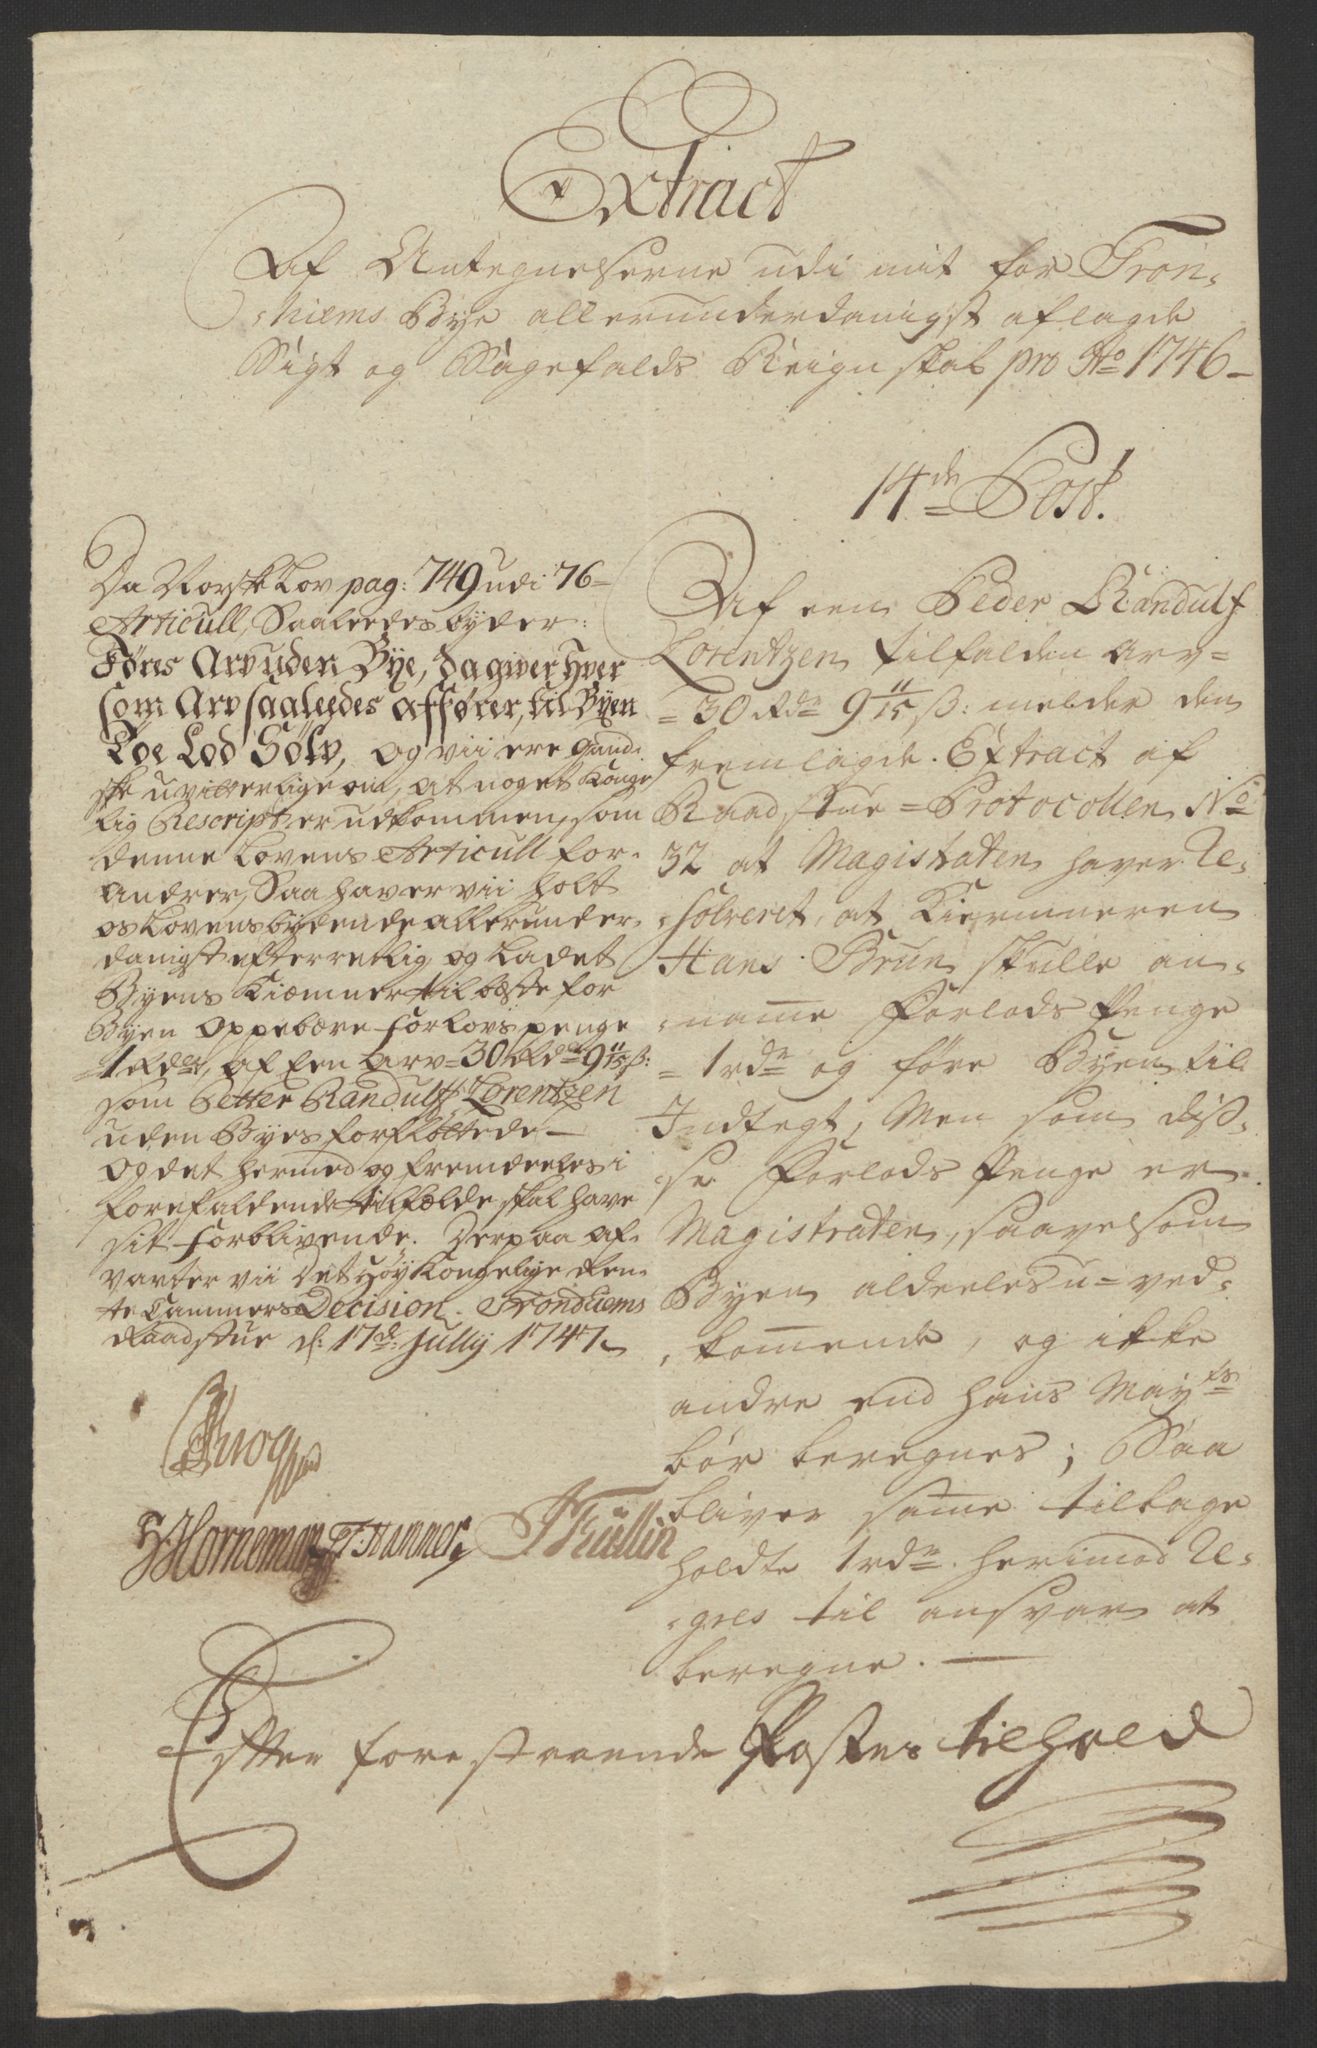 Extract
Af Antegnelserne udi mit for Tron-
-hiems Bye allerunderdanigst aflagde
Sigt og Sagefalds Reignskab pro Ao 1746 -
14de Post.
Da Norske Lov pag: 749 udi 76-
Articull, Saaleedes byder:
Føres Arv uden Bye, da giver hver
som Arv saaleedes affører, til Byen
Toe Lod Sølv, og vii ere gand-
ske uvitterlige om, at noget Konge
lig Rescript er udkommen, som
denne Lovens Articull for-
andrer, Saa haver vii holt
os Lovens bydende allerunder-
danigst efterretlig og Ladet
Byens Kiæmner til bæste for
Byen Oppebære Forlovs penge
1 Rdr, af Een Arv = 30 Rdr 9 11/15 ß:
som Petter Randulf Lorentzen
uden Byes forfløttede -
og det hermed og fremdeeles i
forefaldende tilfælde skal have
sit forblivende. Derpaa af-
varter vii Det Høy Kongelige Ren-
te Cammers Decision. Trondhiems
Raadstue d: 17de Jully 1747
Af een Peder Randulf
Lorentzen tilfalden Arv =
= 30 Rdr 9 11/15 ß: melder den
fremlagde Extract af
Raadstue = Protocollen No
32 at Magistraten haver Re-
-solveret, at Kiemneren
Hans Brun skulle an-
-name Forlods Penge
= 1 rdr og føre Byen til
Indtegt, Men som diß-
-se Forlods Penge er
Magistraten, saavelsom
Byen aldeeles u = ved-
-kommende, og ikke
andre end hans Mayts
bør beregnes; Saa
bliver same tilbage
holdte 1 rdr. herimod Re-
-gres til ansvar at
beregne. -
Krog
H Horneman T Hammer
Efter forestaaende Postes tilhold